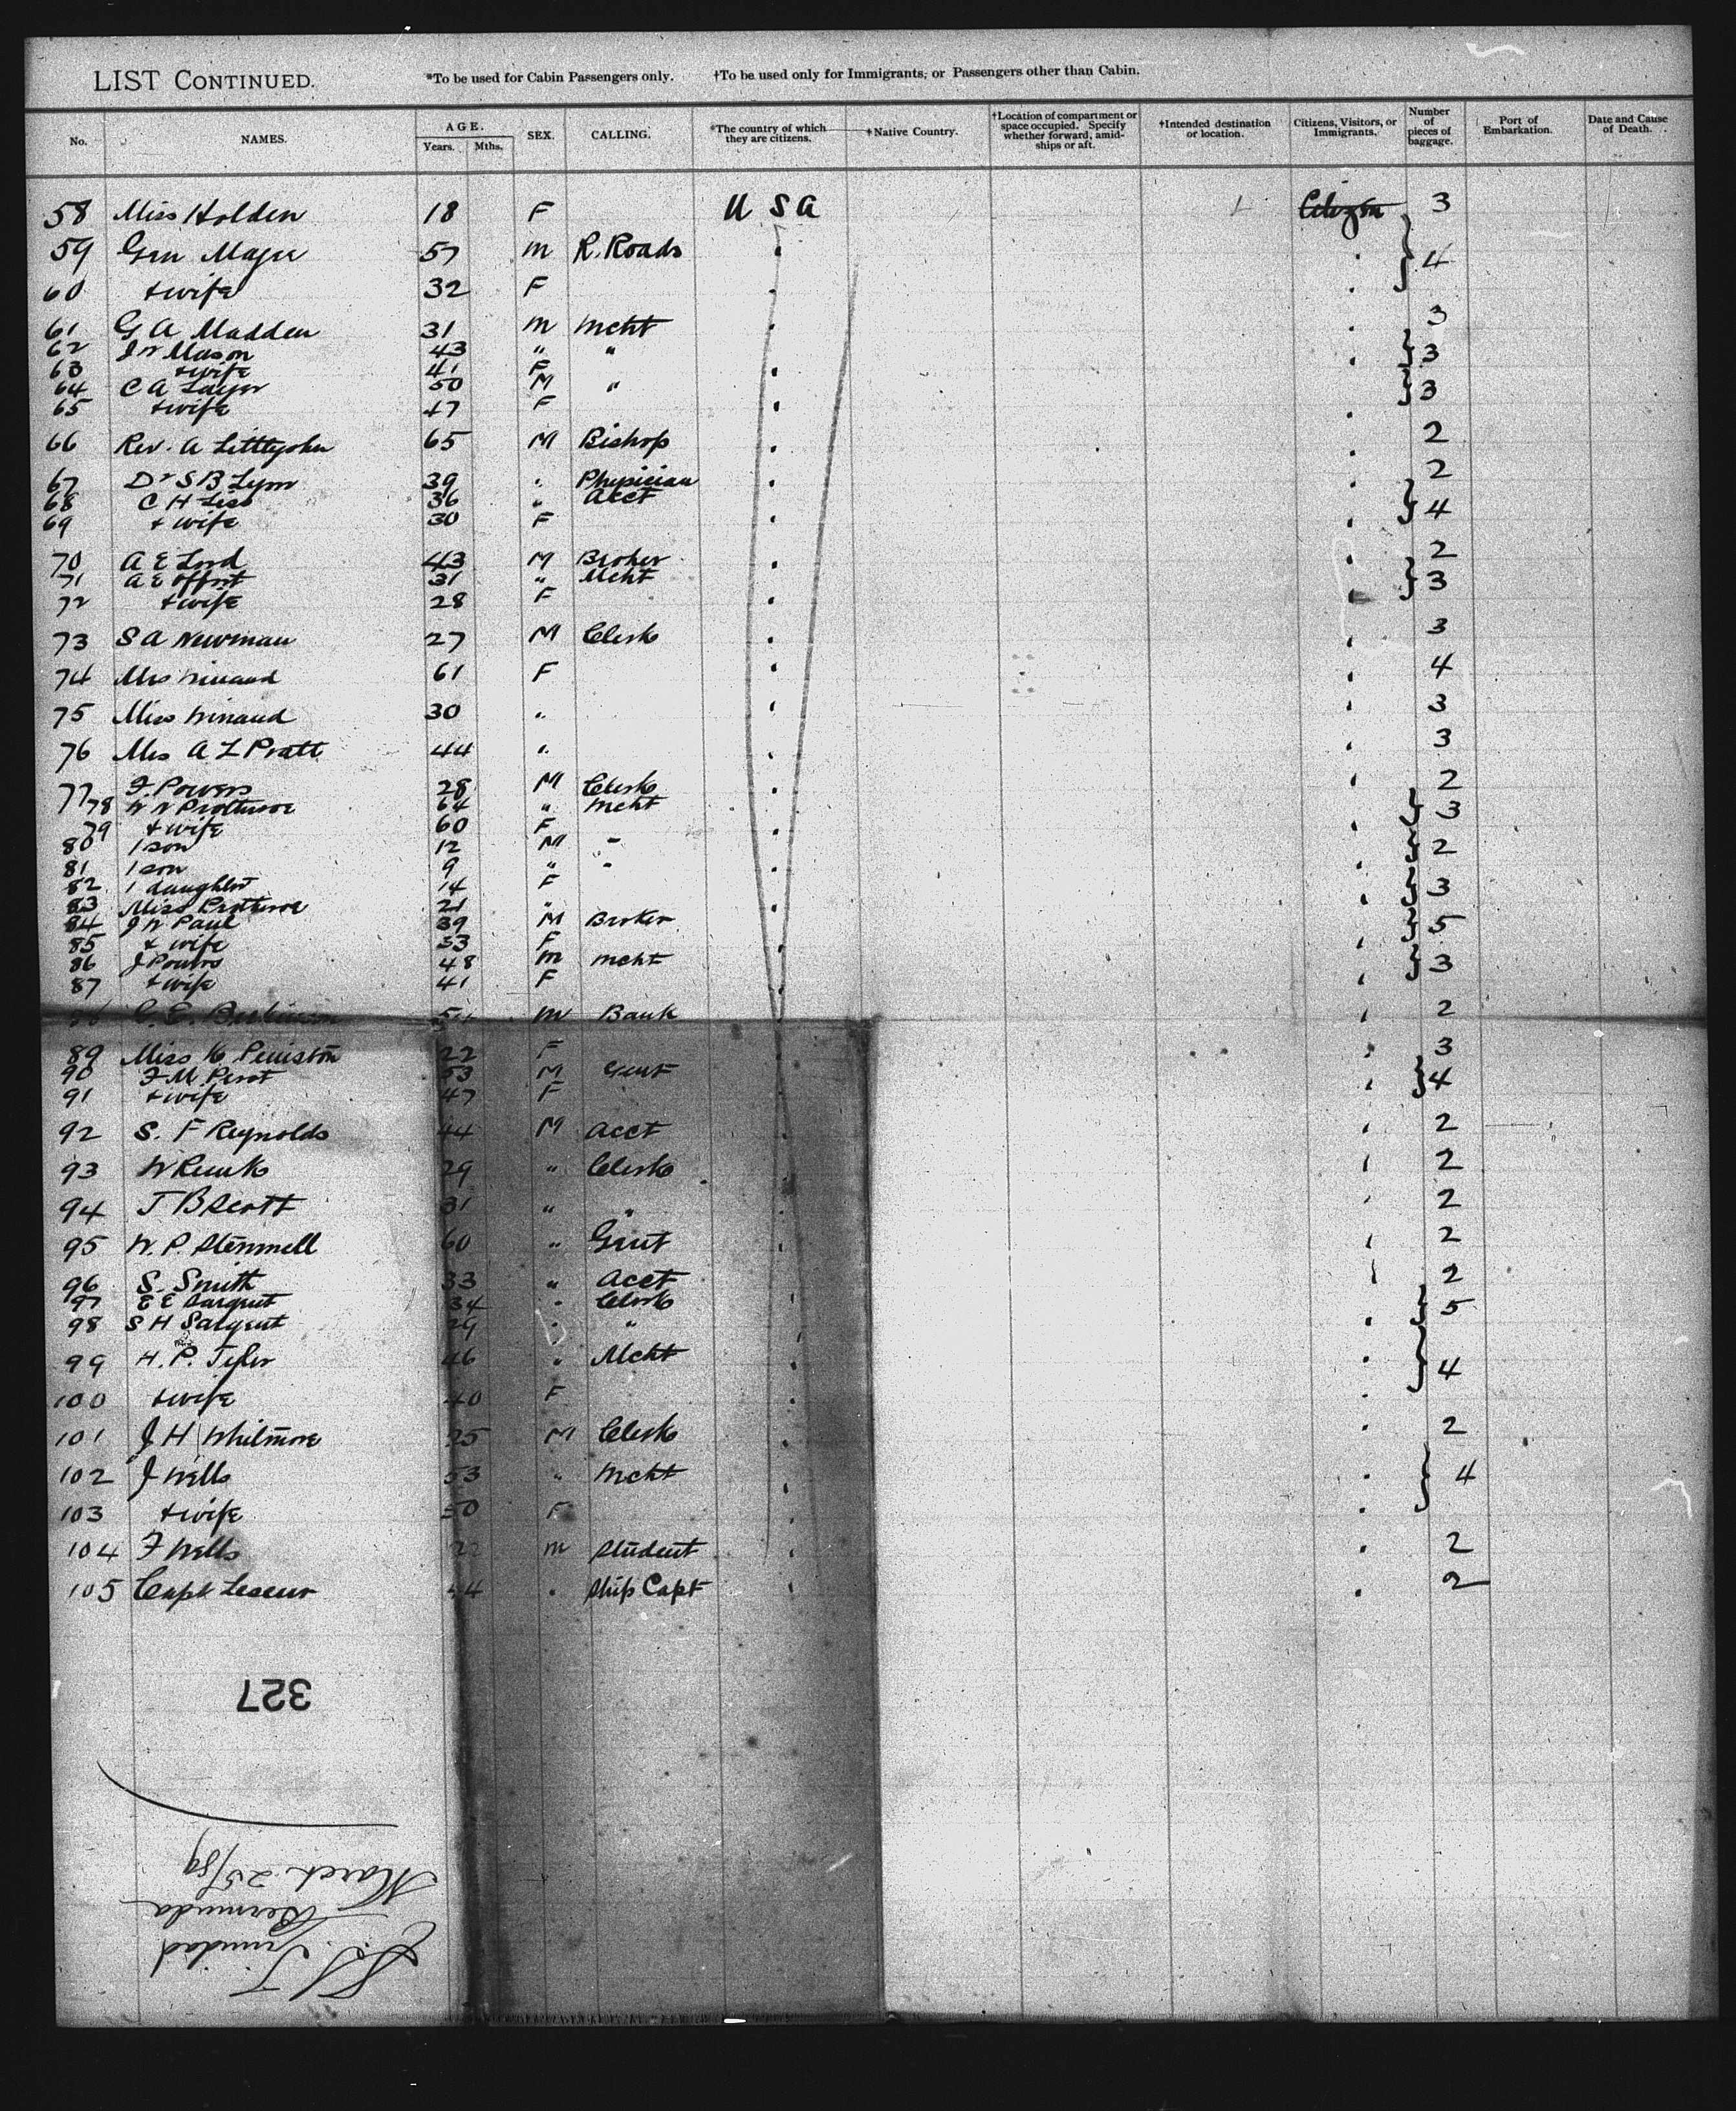 LIST CONTINUED. *To be used for Cabin Passengers only. †To be used only for Immigrants, or Passengers other than Cabin.
No. NAMES. AGE. Years. Mths. SEX. CALLING. *The country of which they are citizens. †Native Country. †Location of compartment or space occupied. Specify whether forward, amidships or aft. †Intended destination or location. Citizens, Visitors, or Immigrants. Number of pieces of baggage. Port of Embarkation. Date and Cause of Death.
58 Miss Holden 18 F U S A Citizen 3
59 57 M R. Roads 4
60 + wife 32 F
61 G A Madden 31 M Mcht 3
62 Mason 43 " " 3
63 + wife 41 F
64 C A 50 M " 3
65 + wife 47 F
66 Rev. A Littlejohn 65 M Bishop 2
67 Dr S B 39 " Physician 2
68 C H 36 " Acct 4
69 + wife 30 F
70 A E Lord 43 M Broker 2
71 A E 31 " Mcht 3
72 + wife 28 F
73 S A Newman 27 M Clerk 3
74 Mrs 61 F 4
75 Miss 30 " 3
76 Mrs A L Pratt 44 " 3
77 F. Powers 28 M Clerk 2
78 64 " Mcht 3
79 + wife 60 F
80 1 son 12 M - 2
81 1 son 9 " -
82 1 daughter 14 F 3
83 Miss 21 "
84 J W Paul 39 M Broker 5
85 + wife 33 F
86 J 48 M Mcht 3
87 + wife 41 F
C. E. M Bank 2
89 Miss K Peniston 22 F 3
90 F M Perot 53 M Gent 4
91 + wife 47 F
92 S. F Reynolds 44 M Acct 2
93 W 29 " Clerk 2
94 J B Scott 31 " " 2
95 W. P 60 " Gent 2
96 S. Smith 33 " Acct 2
97 E E Sargent 34 " Clerk 5
98 S H Sargent 29 " "
99 H. P. 46 " Mcht 4
100 + wife 40 F
101 J H Whitmore 25 M Clerk 2
102 J Wells 53 " Mcht 4
103 + wife 50 F
104 F Wells 22 M Student 2
105 Capt " Ship Capt 2
327
S.S. Trinidad
Bermuda
March 25/89